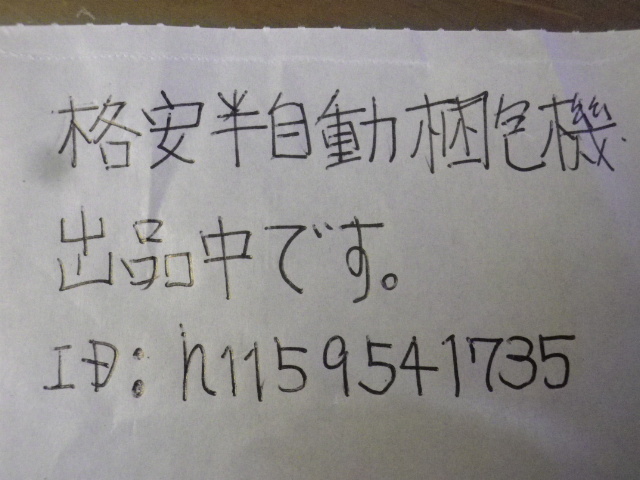 格安半自動梱包機
出品中です。
ID:n1159541735